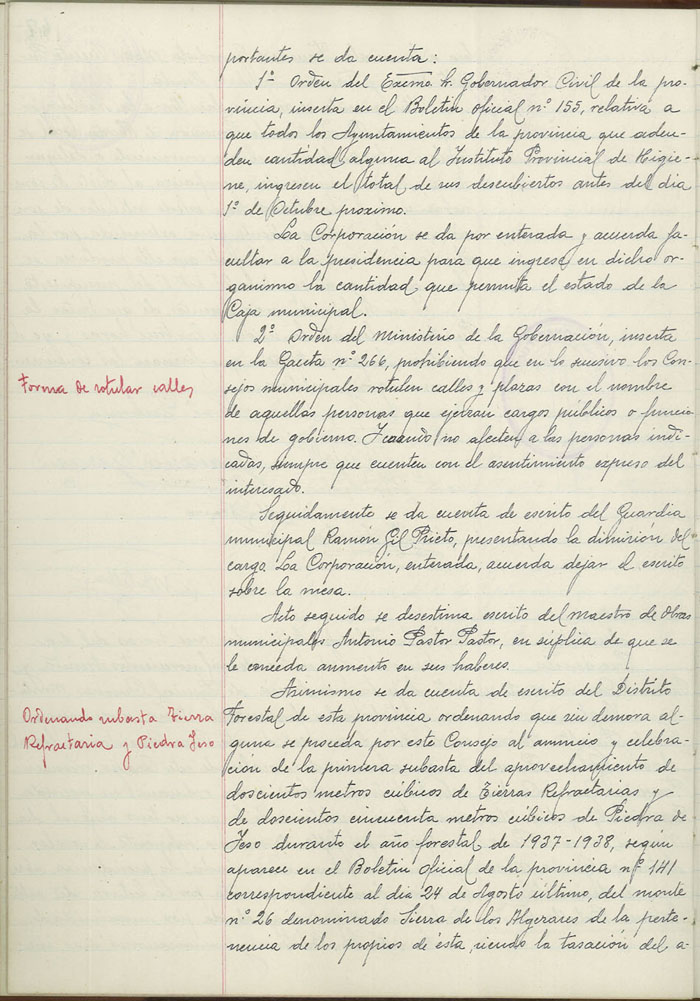 portantes se da cuenta:
1º Orden del Excmo. Sr. Gobernador Civil de la pro-
vincia, inserta en el Boletin oficial nº 155, relativa a
que todos los Ayuntamientos de la provincia que adeu-
den cantidad alguna al Instituto Provincial de Higie-
ne, ingresen el total de sus descubiertos antes del dia
1º de Octubre proximo.
La Corporación se da por enterada y acuerda fa-
cultar a la presidencia para que ingrese en dicho or-
ganismo la cantidad que permita el estado de la
Caja municipal.
2º Orden del Ministerio de la Gobernación, inserta
en la Gaceta nº 266, prohibiendo que en lo sucesivo los Con-
Forma de rotular calles
sejos municipales rotulen calles y plazas con el nombre
de aquellas personas que ejerzan cargos públicos o funcio-
nes de gobierno. Y cuando no afecten a las personas indi-
cadas, siempre que cuenten con el asentimiento expreso del
interesado.
Seguidamente se da cuenta de escrito del Guardia
municipal Ramón Gil Prieto, presentando la dimisión del
cargo. La Corporación, enterada, acuerda dejar el escrito
sobre la mesa.
Acto seguido se desestima escrito del Maestro de Obras
municipales Antonio Pastor Pastor, en súplica de que se
le conceda aumento en sus haberes.
Asimismo se da cuenta de escrito del Distrito
Ordenando subasta Tierra
Refractaria y Piedra Yeso
Forestal de esta provincia ordenando que sin demora al-
guna se proceda por este Consejo al anuncio y celebra-
ción de la primera subasta del aprovechamiento de
doscientos metros cúbicos de Tierras Refractarias y
de doscientos cincuenta metros cúbicos de Piedra de
Yeso durante el año forestal de 1937-1938, según
aparece en el Boletin Oficial de la provincia nº 141
correspondiente al dia 24 de Agosto último, del monte
nº 26 denominado Sierra de los Algezares de la perte-
nencia de los propios de ésta, siendo la tasación del a-